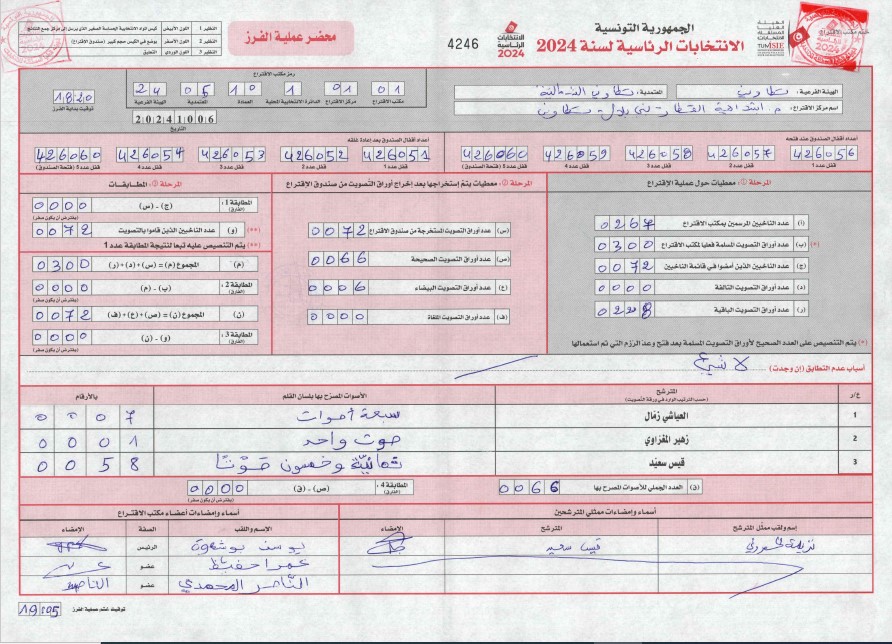 الجمهورية التونسية
الانتخابات الرئاسية لسنة 2024
الانتخابات الرئاسية 2024
4246
محضر عملية الفرز
النظير 1 اللون الأبيض
النظير 2 اللون الأصفر
النظير 3 اللون الوردي التعليق
الهيئة الفرعية: تطاوين المعتمدية: تطاوين الشمالية
إسم مركز الإقتراع:
رمز مكتب الاقتراع
01 01 1 10 05 24
مكتب الاقتراع مركز الاقتراع الدائرة الانتخابية المحلية العمادة المعتمدية الهيئة الفرعية
20241006
التاريخ
18:20
توقيت بداية الفرز
أعداد أقفال الصندوق عند فتحه
426056 426057 426058 426059 426060
قفل عدد 1 قفل عدد 2 قفل عدد 3 قفل عدد 4 قفل عدد 5 (فتحة الصندوق)
أعداد أقفال الصندوق بعد إعادة غلقه
426051 426052 426053 426054 426060
قفل عدد 1 قفل عدد 2 قفل عدد 3 قفل عدد 4 قفل عدد 5 (فتحة الصندوق)
المرحلة ①: معطيات حول عملية الإقتراع
(أ) عدد الناخبين المرسمين بمكتب الإقتراع
(ب) عدد أوراق التصويت المسلمة فعليا لمكتب الاقتراع 0300
(ج) عدد الناخبين الذين أمضوا في قائمة الناخبين 0072
(د) عدد أوراق التصويت التالفة 0000
(ر) عدد أوراق التصويت الباقية 0228
(*) يتم التنصيص على العدد الصحيح لأوراق التصويت المسلمة بعد فتح وعد الرزم التي تم استعمالها
المرحلة ②: معطيات يتم إستخراجها بعد إخراج أوراق التصويت من صندوق الإقتراع
(س) عدد أوراق التصويت المستخرجة من صندوق الاقتراع 0072
(ص) عدد أوراق التصويت الصحيحة 0066
(ع) عدد أوراق التصويت البيضاء 0006
(ف) عدد أوراق التصويت الملغاة 0000
المرحلة ③: المطابقات
المطابقة 1: (الفارق) (ج) - (س) 0000
(يفترض أن يكون صفر)
(**) (و) عدد الناخبين الذين قاموا بالتصويت 0072
(**) يتم التنصيص عليه تبعا لنتيجة المطابقة عدد 1
(م) المجموع (م) = (س) + (د) + (ر) 0300
المطابقة 2: (الفارق) (ب) - (م) 0000
(ن) المجموع (ن) = (ص) + (ع) + (ف) 0072
المطابقة 3: (الفارق) (و) - (ن) 0000
(يفترض أن يكون صفر)
أسباب عدم التطابق (إن وجدت) لا شيء
ع/د المترشح الأصوات المصرح بها بلسان القلم بالأرقام
(حسب الترتيب الوارد في ورقة التصويت)
1 العياشي زمّال سبعة أصوات 0007
2 زهير المغزاوي صوت واحد 0001
3 قيس سعيّد ثمانيّة وخمسون صوتا 0058
(ق) العدد الجملي للأصوات المصرح بها 0066
المطابقة 4: (الفارق) (ص) - (ق) 0000
(يفترض أن يكون صفر)
أسماء وإمضاءات ممثلي المترشحين
إسم ولقب ممثل المترشح المترشح الإمضاء
قيس سعيد
أسماء وإمضاءات أعضاء مكتب الاقتراع
الاسم واللقب الصفة الإمضاء
يوسف بوشهوة الرئيس
عمر احفيظ عضو
الناصر المحمدي عضو
توقيت ختم عملية الفرز 19:05